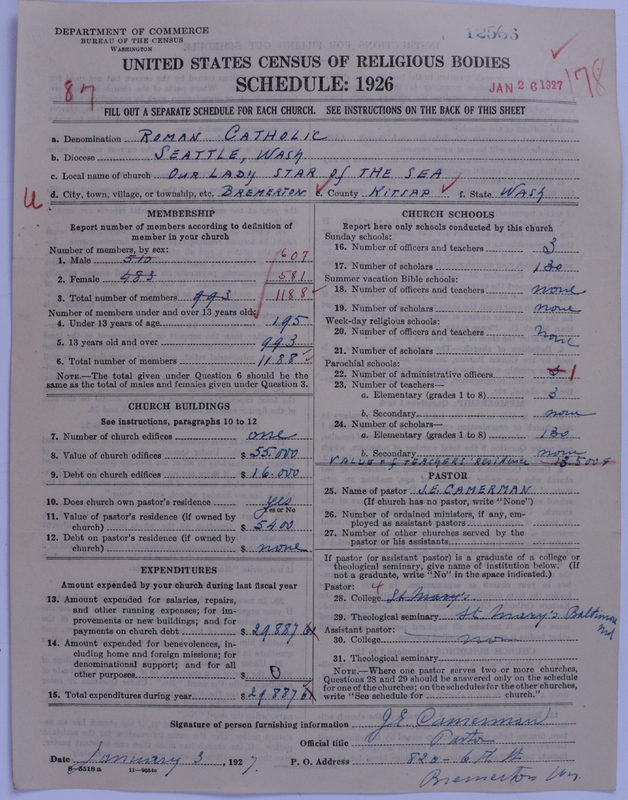 DEPARTMENT OF COMMERCE
BUREAU OF THE CENSUS
WASHINGTON
12563
UNITED STATES CENSUS OF RELIGIOUS BODIES
SCHEDULE: 1926
87
JAN 26 1927
178
FILL OUT A SEPARATE SCHEDULE FOR EACH CHURCH. SEE INSTRUCTIONS ON THE BACK OF THIS SHEET
a. Denomination ROMAN CATHOLIC
b. Diocese SEATTLE, WASH
c. Local name of church OUR LADY STAR OF THE SEA
d. City, town, village, or township, etc. BREMERTON e. County KITSAP f. State WASH
MEMBERSHIP
Report number of members according to definition of
member in your church
Number of members, by sex:
1. Male 510 607
2. Female 483 581
3. Total number of members 993 1188
Number of members under and over 13 years old:
4. Under 13 years of age 195
5. 13 years old and over 993
6. Total number of members 1188
NOTE.—The total given under Question 6 should be the
same as the total of males and females given under Question 3.
CHURCH BUILDINGS
See instructions, paragraphs 10 to 12
7. Number of church edifices one
8. Value of church edifices $ 55.000
9. Debt on church edifices $ 16.000
10. Does church own pastor's residence yes
Yes or No
11. Value of pastor's residence (if owned by
church) $ 5400
12. Debt on pastor's residence (if owned by
church) $ none
EXPENDITURES
Amount expended by your church during last fiscal year
13. Amount expended for salaries, repairs,
and other running expenses; for im-
provements or new buildings; and for
payments on church debt $ 29.887
14. Amount expended for benevolences, in-
cluding home and foreign missions; for
denominational support; and for all
other purposes $ 0
15. Total expenditures during year $ 29.887
CHURCH SCHOOLS
Report here only schools conducted by this church
Sunday schools:
16. Number of officers and teachers 3
17. Number of scholars 130
Summer vacation Bible schools:
18. Number of officers and teachers none
19. Number of scholars none
Week-day religious schools:
20. Number of officers and teachers none
21. Number of scholars
Parochial schools:
22. Number of administrative officers 1
23. Number of teachers—
a. Elementary (grades 1 to 8) 3
b. Secondary none
24. Number of scholars—
a. Elementary (grades 1 to 8) 130
b. Secondary none
VALUE of TEACHERS' RESIDENCE 13500
PASTOR
25. Name of pastor J.E. CAMERMAN
(If church has no pastor, write "None")
26. Number of ordained ministers, if any, em-
ployed as assistant pastors
27. Number of other churches served by the
pastor or his assistants
If pastor (or assistant pastor) is a graduate of a college or
theological seminary, give name of institution below. (If
not a graduate, write "No" in the space indicated.)
Pastor: 4
28. College St Mary's
29. Theological seminary St Mary's Baltimore Md
Assistant pastor:
30. College no
31. Theological seminary
NOTE.—Where one pastor serves two or more churches,
Questions 28 and 29 should be answered only on the schedule
for one of the churches; on the schedules for the other churches,
write "See schedule for church."
Signature of person furnishing information J.E. Camerman
Official title Pastor
Date January 3, 1927 P. O. Address 820-6th St
8-5518 a
Bremerton Wn.